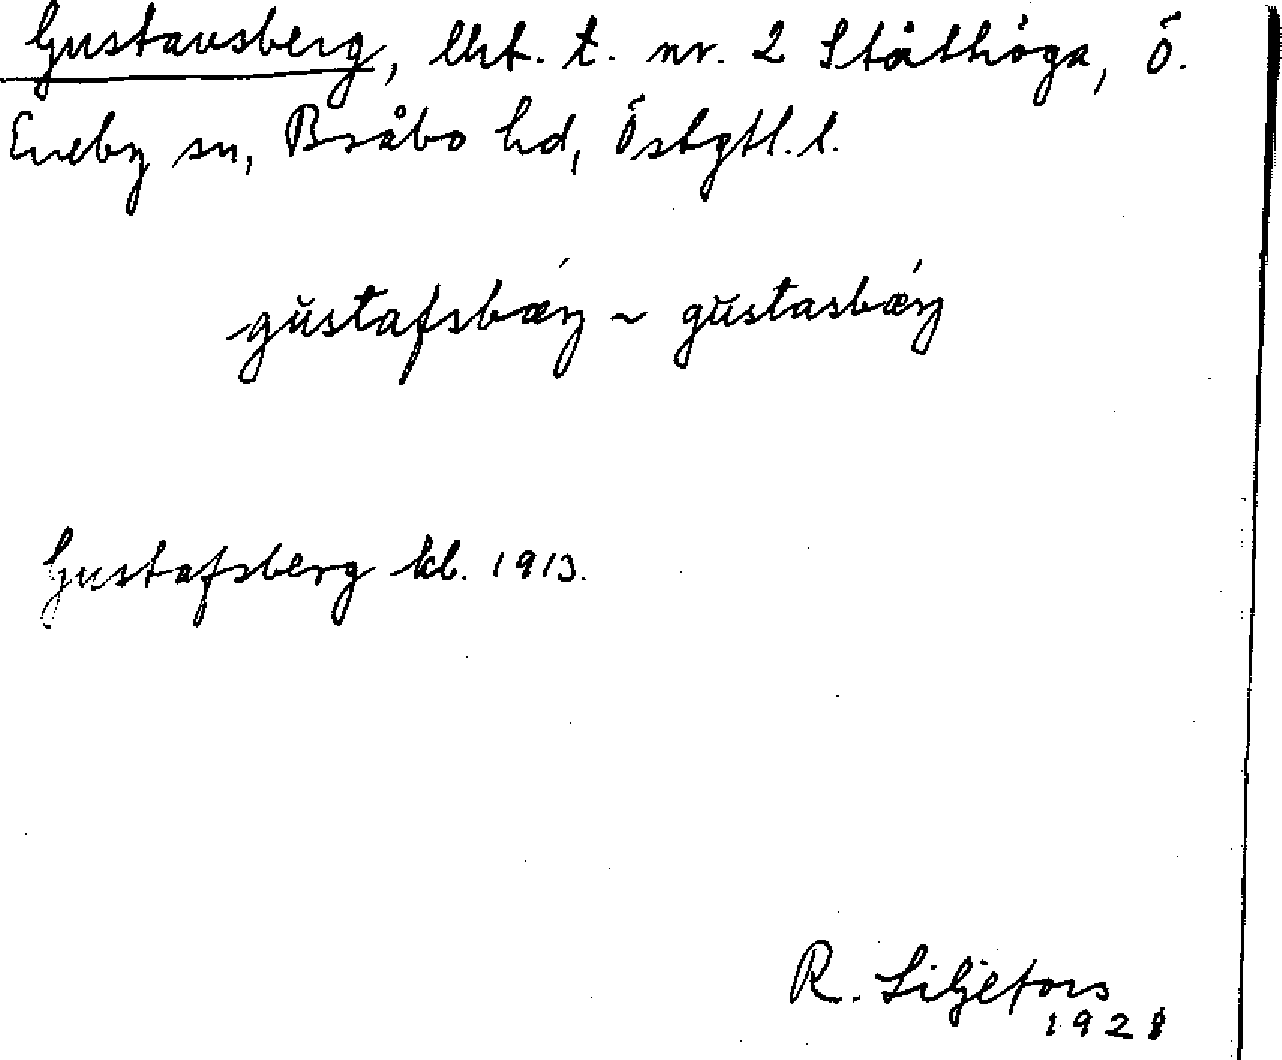 Gustavsberg, lht. t. nr. 2 Ståthöga, Ö.
Eneby sn, Bråbo hd, Östgtl. l.
gustafsbǽrj ~ gustasbǽrj
Gustafsberg kb. 1913.
R. Liljefors
1928